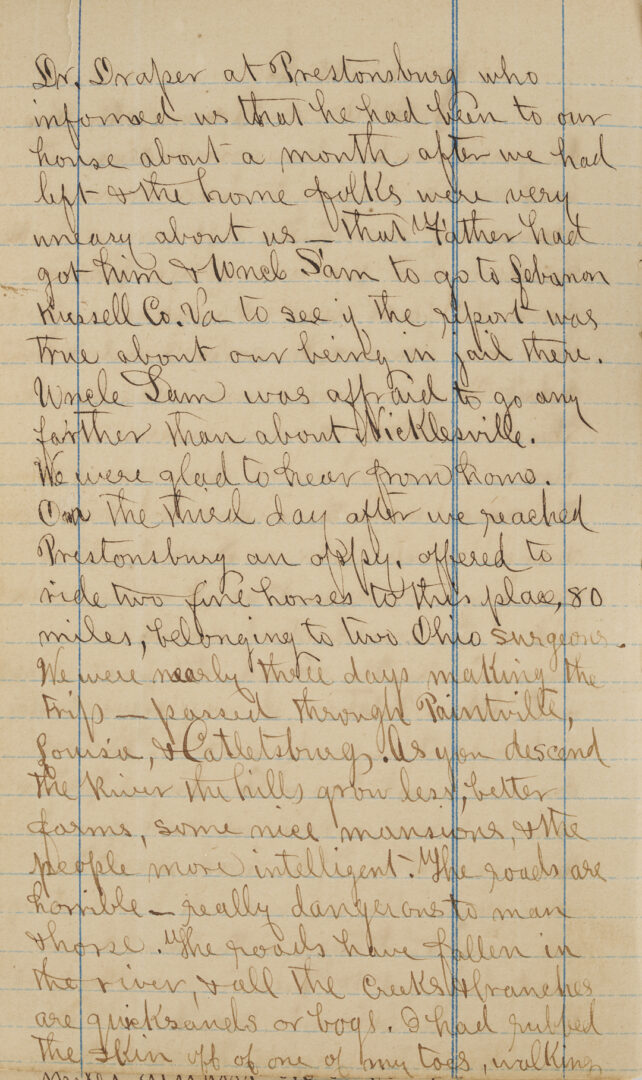 Dr. Draper at Prestonsburg who
informed us that he had been to our
house about a month after we had
left & the home folks were very
uneasy about us — that Father had
got him & Uncle Sam to go to Lebanon
Russell Co. Va to see if the report was
true about our being in jail there.
Uncle Sam was affraid to go any
farther than about Nicklesville.
We were glad to hear from home.
On the third day after we reached
Prestonsburg an oppy. offered to
ride two fine horses to this place, 80
miles, belonging to two Ohio surgeons.
We were nearly three days making the
trip — passed through Paintville,
Louisa, & Catletsburg. As you descend
the River the hills grow less, better
farms, some nice mansions, & the
people more intelligent. The roads are
horrible — really dangerous to man
& horse. The roads have fallen in
the river, & all the creeks & branches
are quicksands or bogs. I had rubbed
the skin off of one of my toes, walking